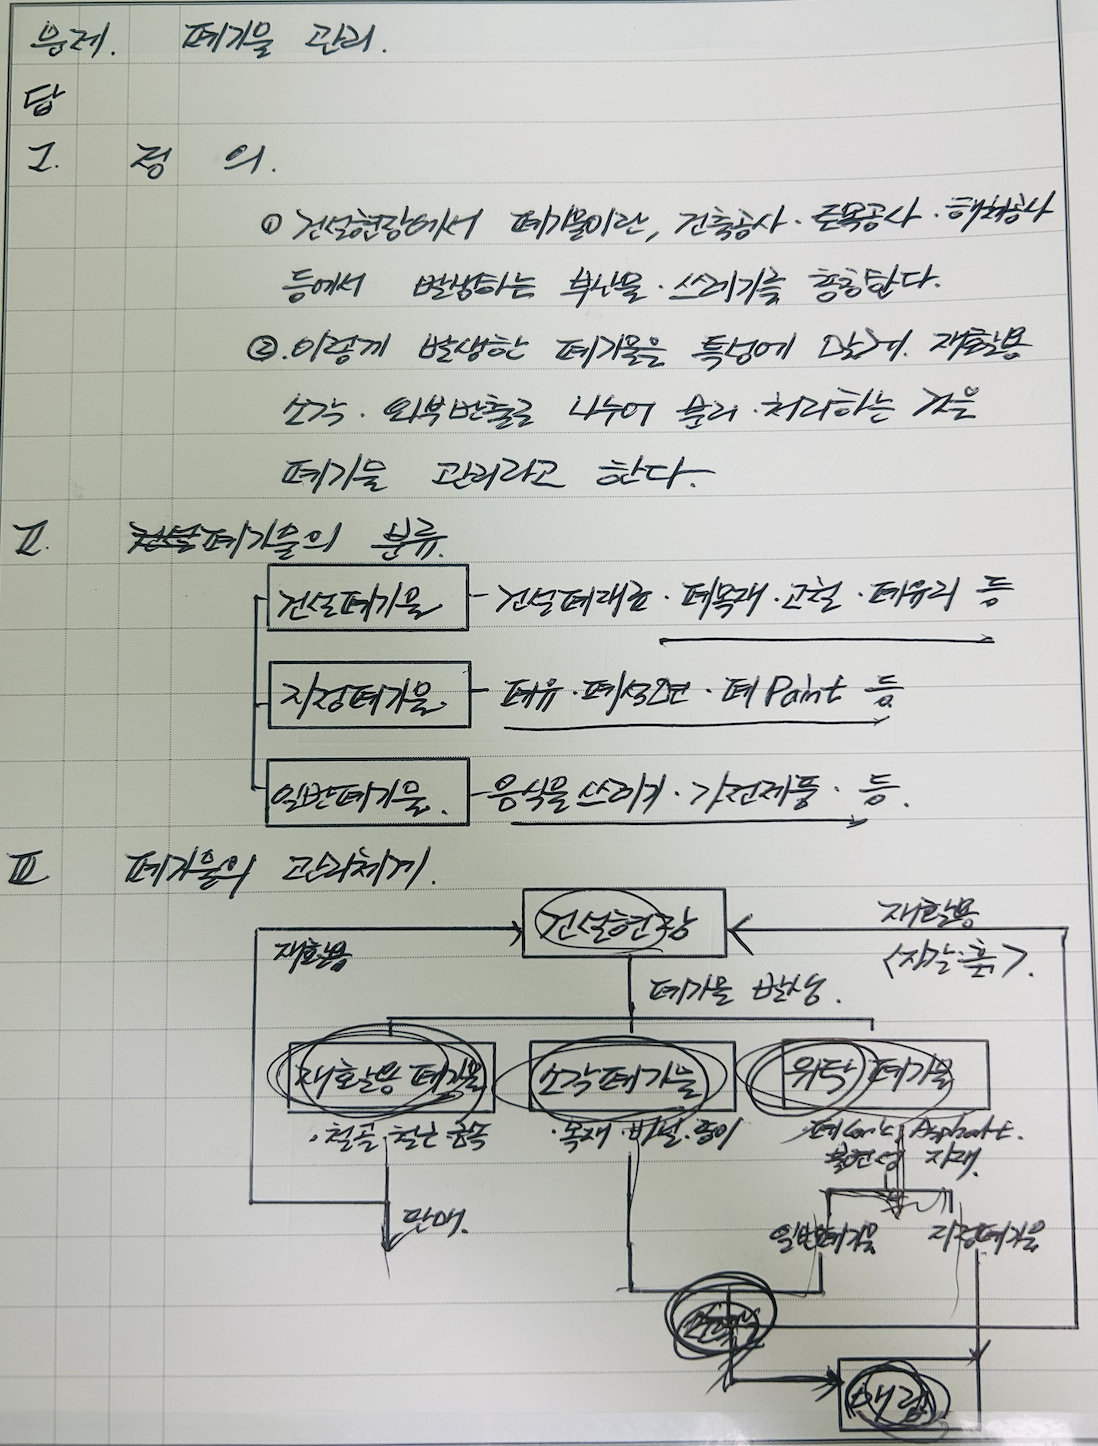 문제. 폐기물 관리.
답
I. 정 의.
① 건설현장에서 폐기물이란, 건축공사·토목공사·해체공사
등에서 발생하는 부산물·쓰레기를 총칭한다.
②.이렇게 발생한 폐기물을 특성에 맞게. 재활용
소각·외부반출로 나누어 분리·처리하는 것을
폐기물 관리라고 한다.
II. 폐기물의 분류.
건설폐기물 - 건설폐재료·폐목재·고철·폐유리 등
지정폐기물. - 폐유·폐석면·폐Paint 등
일반폐기물. - 음식물쓰레기·가전제품· 등.
III 폐기물의 관리체계.
건설현장
재활용
재활용
<자갈·흙>.
폐기물 발생.
재활용 폐기물 소각폐기물 위탁 폐기물
·철골·철근 금속 ·목재·비닐·종이 폐Conc, Asphalt.
불연성 자재.
판매. 일반폐기물 지정폐기물
매립